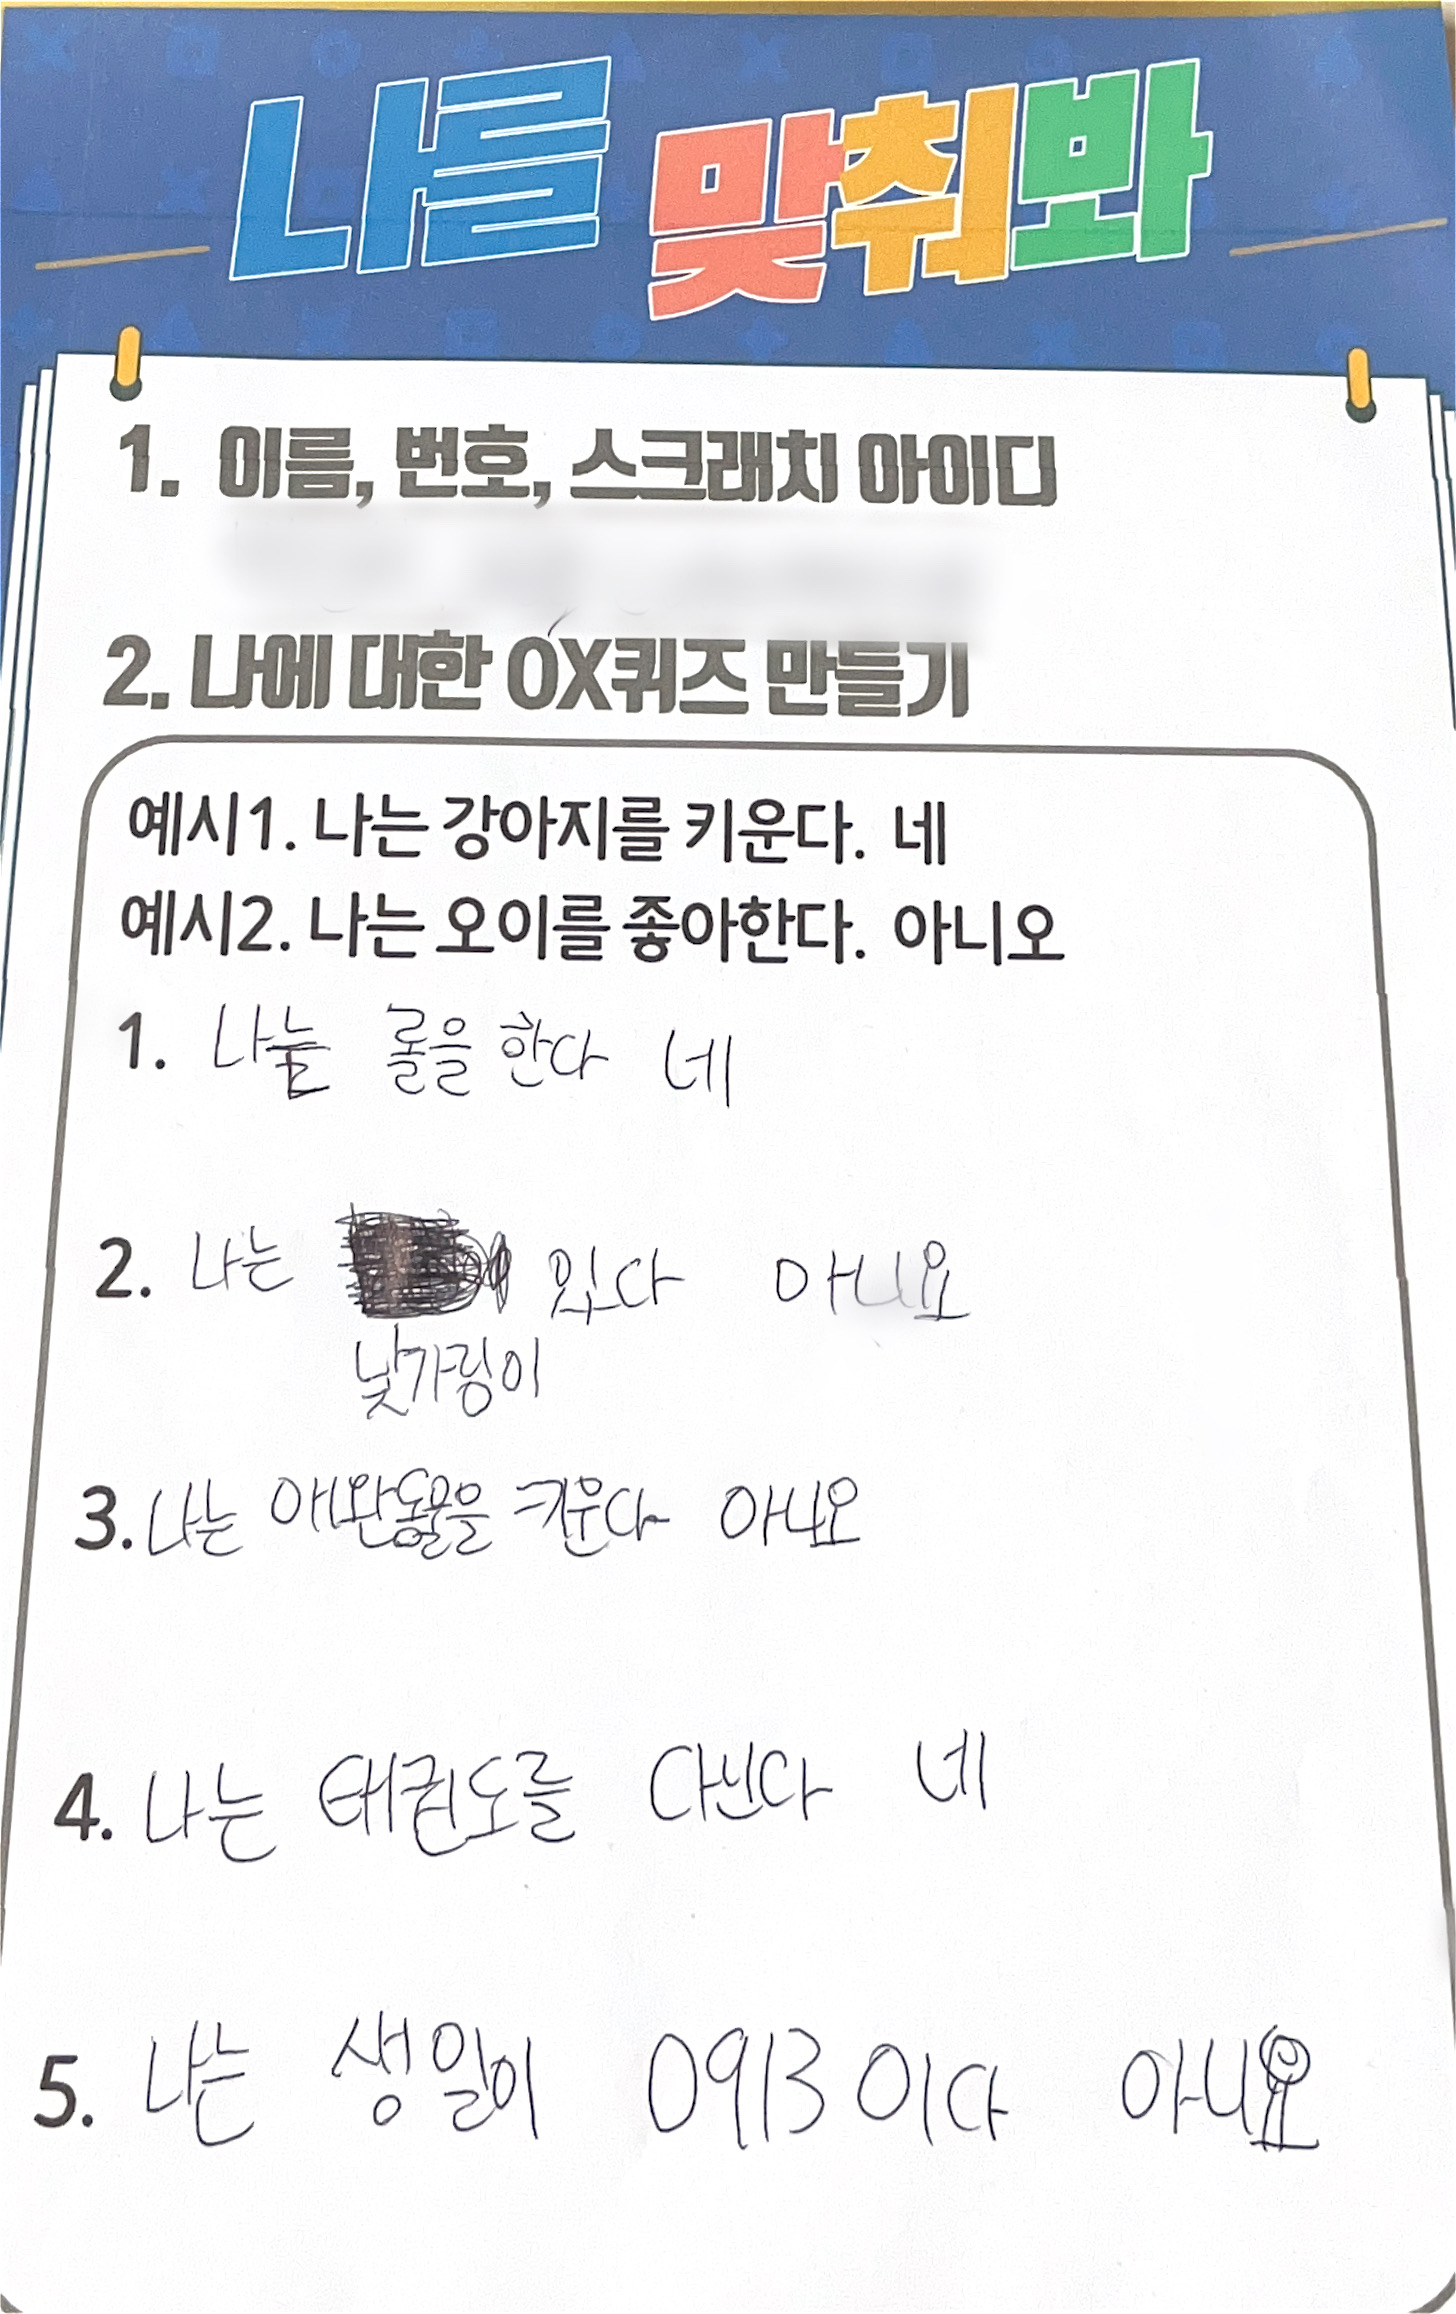 나를 맞춰봐
1. 이름, 번호, 스크래치 아이디
2. 나에 대한 OX퀴즈 만들기
예시1. 나는 강아지를 키운다. 네
예시2. 나는 오이를 좋아한다. 아니오
1. 나눌 롤을 한다 네
2. 나는 있다 아니요
낯가림이
3. 나는 애완동물을 키운다 아니요
4. 나는 태권도를 다닌다 네
5. 나는 생일이 0913이다 아니요